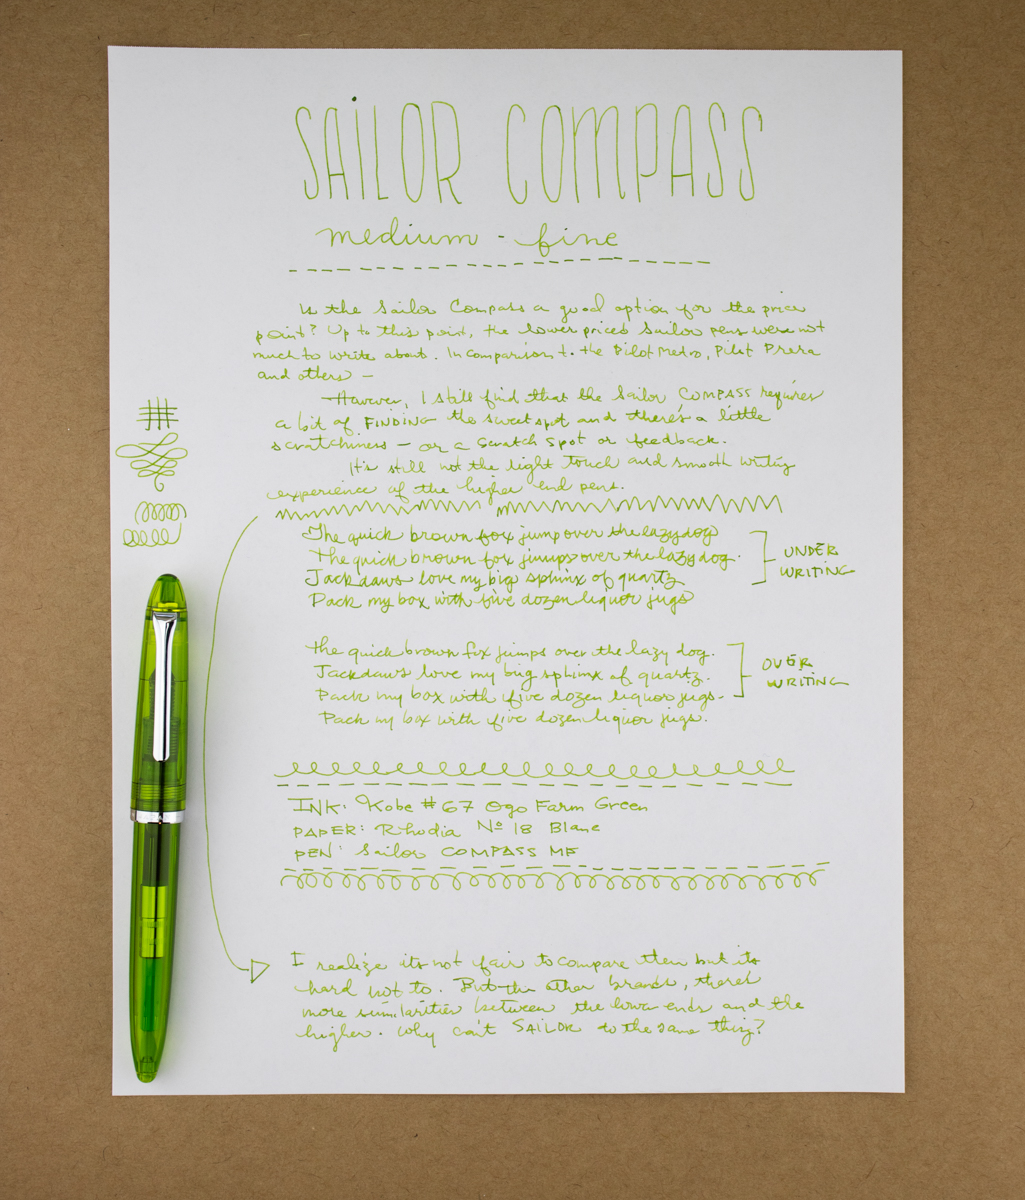 SAILOR COMPASS
medium - fine
Is the Sailor Compass a good option for the price
point? Up to this point, the lower priced Sailor pens were not
much to write about. In comparison to the Pilot Metro, Pilot Prera
and others —
However, I still find that the Sailor COMPASS requires
a bit of FINDING the sweet spot and there's a little
scratchiness — or a scratch spot or feedback.
It's still not the light touch and smooth writing
experience of the higher end pens.
The quick brown fox jump over the lazy dog
The quick brown fox jumps over the lazy dog.
Jackdaws love my big sphinx of quartz
Pack my box with five dozen liquor jugs
UNDER
WRITING
the quick brown fox jumps over the lazy dog.
Jackdaws love my big sphinx of quartz.
Pack my box with five dozen liquor jugs.
Pack my box with five dozen liquor jugs.
OVER
WRITING
INK: Kobe #67 Ogo Farm Green
PAPER: Rhodia Nº 18 Blanc
PEN: Sailor COMPASS MF
I realize its not fair to compare them but its
hard not to. But the other brands, there's
more similarities between the lower ends and the
higher. Why can't SAILOR do the same thing?